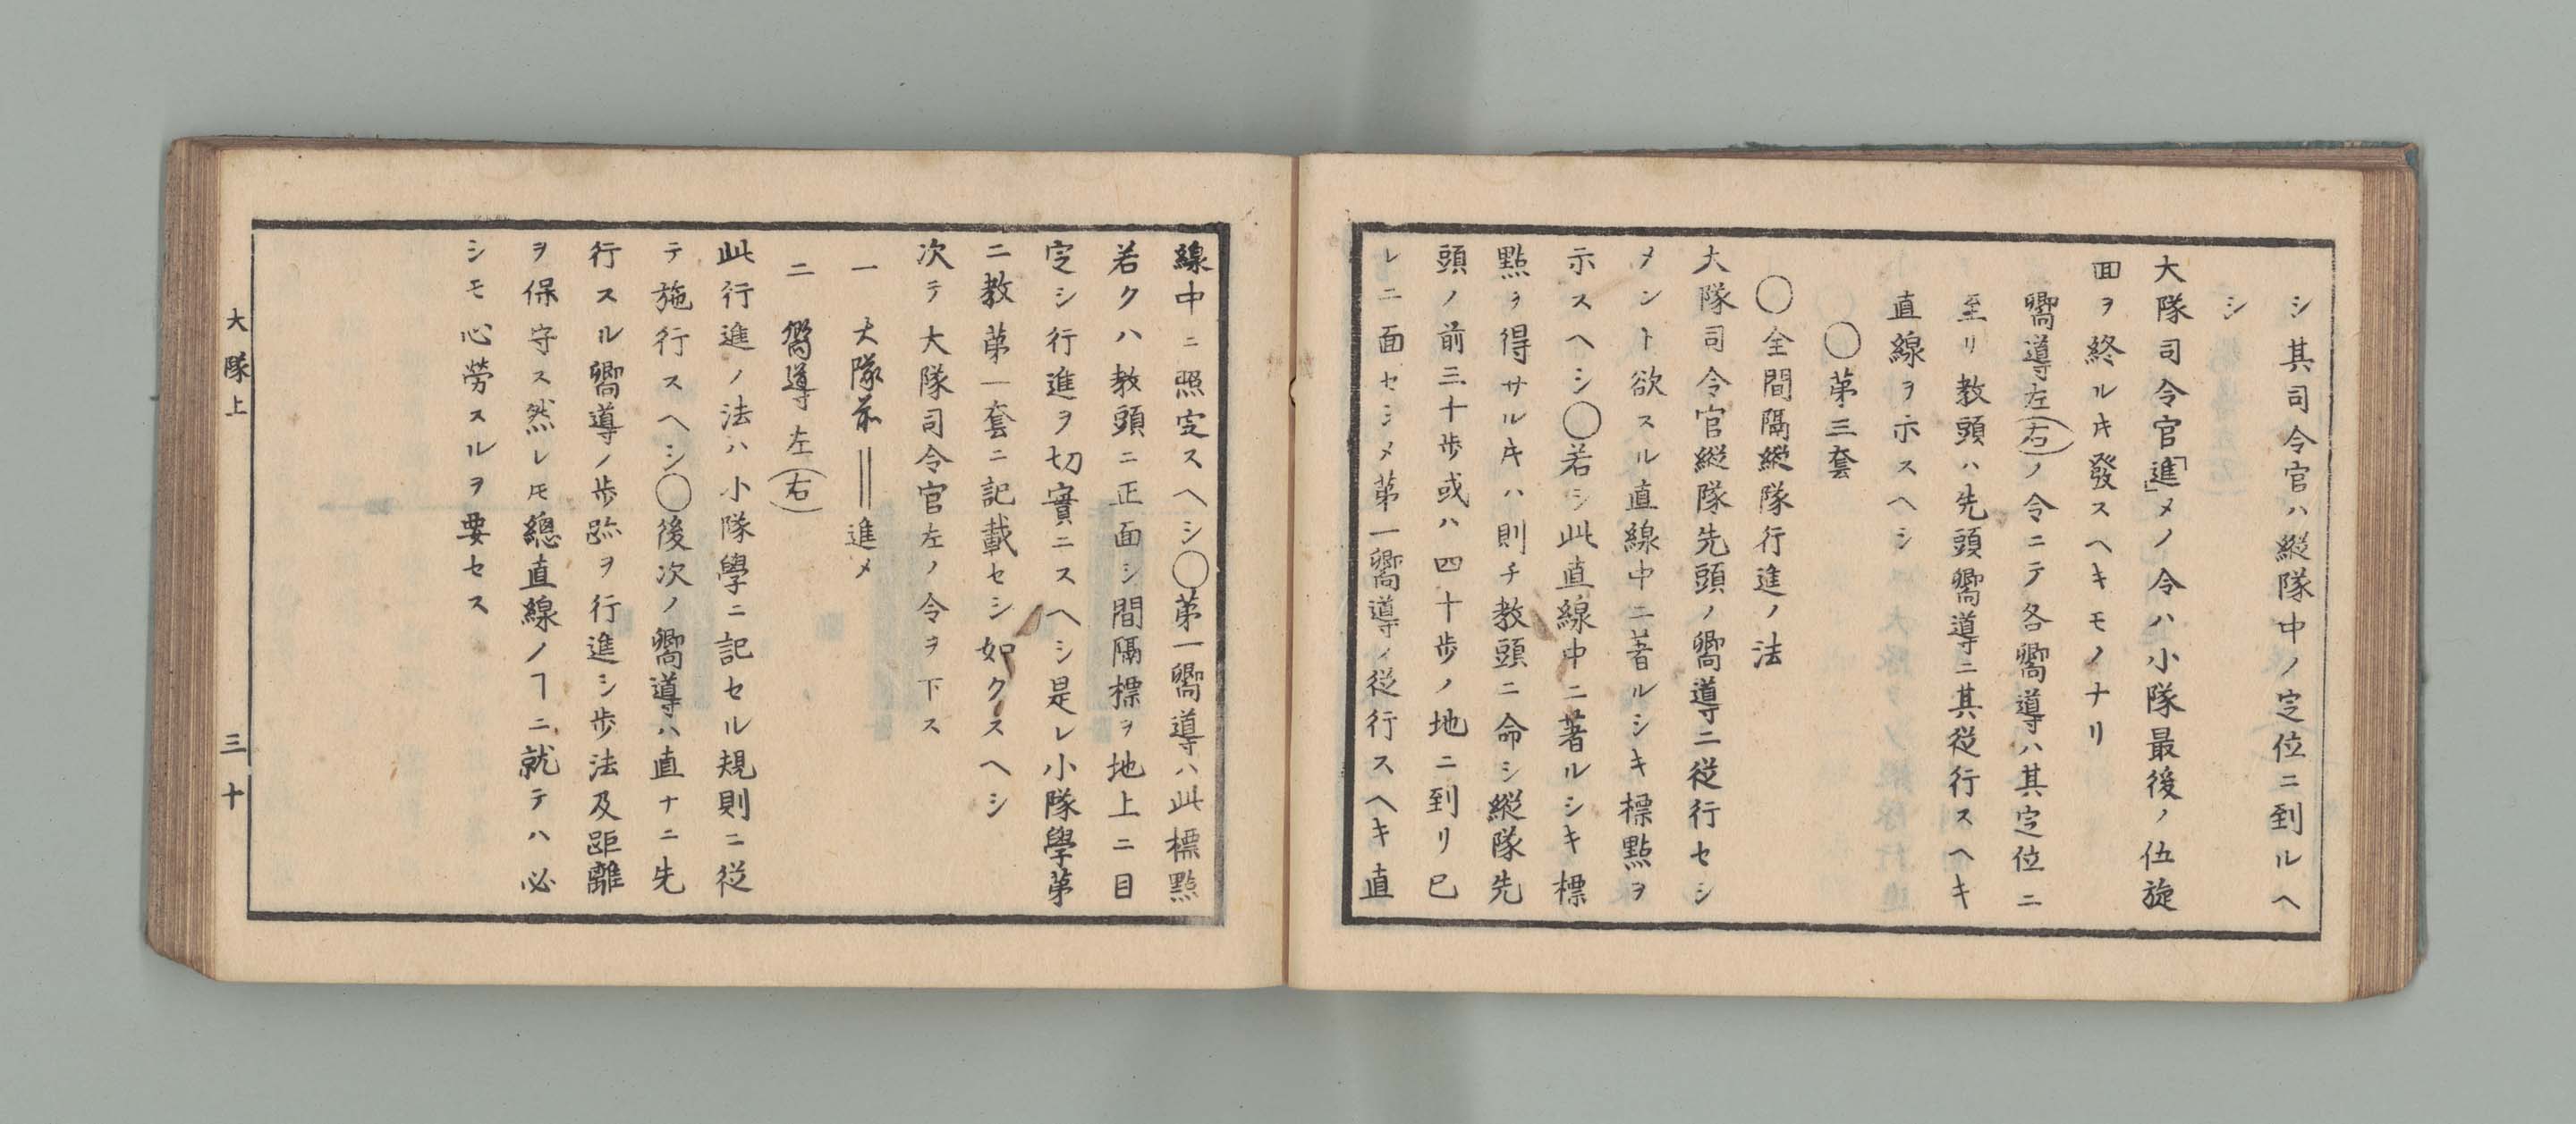 シ其司令官ハ縦隊中ノ定位ニ到ルヘ
シ
大隊司令官「進」メノ令ハ小隊最後ノ伍旋
回ヲ終ルキ發スヘキモノナリ
嚮導左(右)ノ令ニテ各嚮導ハ其定位ニ
至リ教頭ハ先頭嚮導ニ其従行スヘキ
直線ヲ示スヘシ
○第三套
○全間隔縦隊行進ノ法
大隊司令官縦隊先頭ノ嚮導ニ従行セシ
メント欲スル直線中ニ著ルシキ標點ヲ
示スヘシ○若シ此直線中ニ著ルシキ標
點ヲ得サルキハ則チ教頭ニ命シ縦隊先
頭ノ前三十歩或ハ四十歩ノ地ニ到リ已
レニ面セシメ第一嚮導ノ従行スヘキ直
線中ニ照定スヘシ○第一嚮導ハ此標點
若クハ教頭ニ正面シ間隔標ヲ地上ニ目
定シ行進ヲ切實ニスヘシ是レ小隊學第
二教第一套ニ記載セシ如クスヘシ
次テ大隊司令官左ノ令ヲ下ス
一 大隊前‖進メ
二 嚮導左(右)
此行進ノ法ハ小隊學ニ記セル規則ニ従
テ施行スヘシ○後次ノ嚮導ハ直ナニ先
行スル嚮導ノ歩跡ヲ行進シ歩法及距離
ヲ保守ス然レ𪜈總直線ノヿニ就テハ必
シモ心勞スルヲ要セス
大隊上
三十